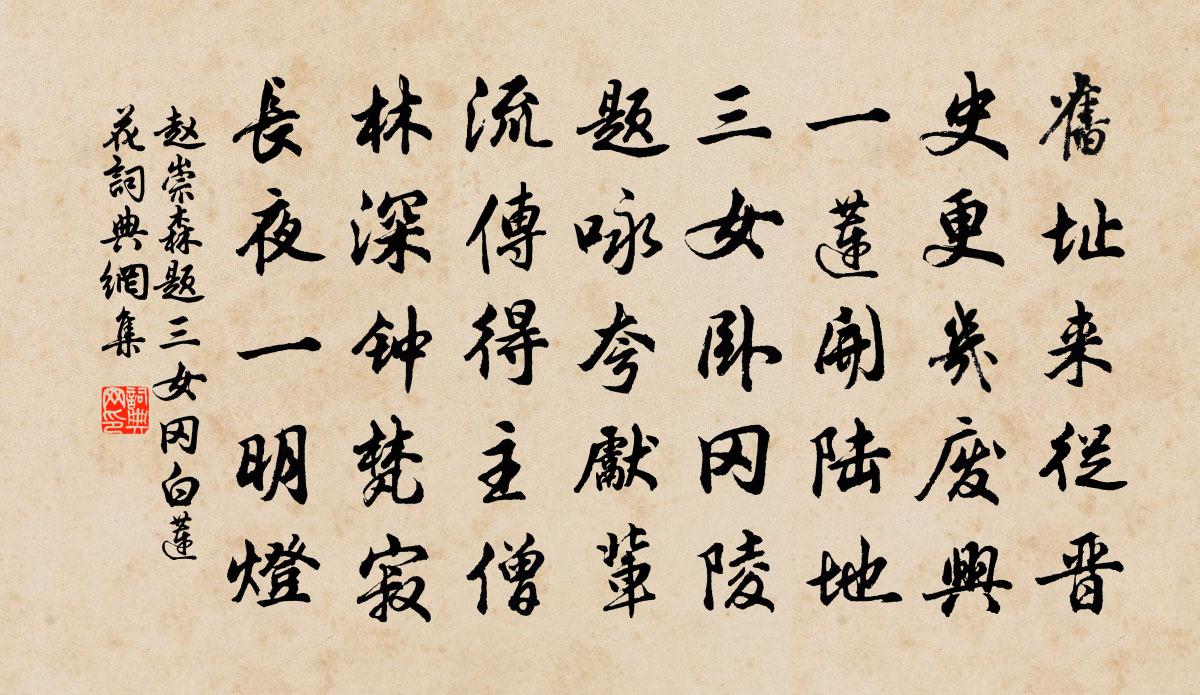 舊址来從晋
史更幾廢興
一蓮開陆地
三女卧冈陵
题咏夸獻輩
流傳得主僧
林深钟梵寂
長夜一明燈
赵崇森题三女冈白蓮
花詞典網集
詞典
网印